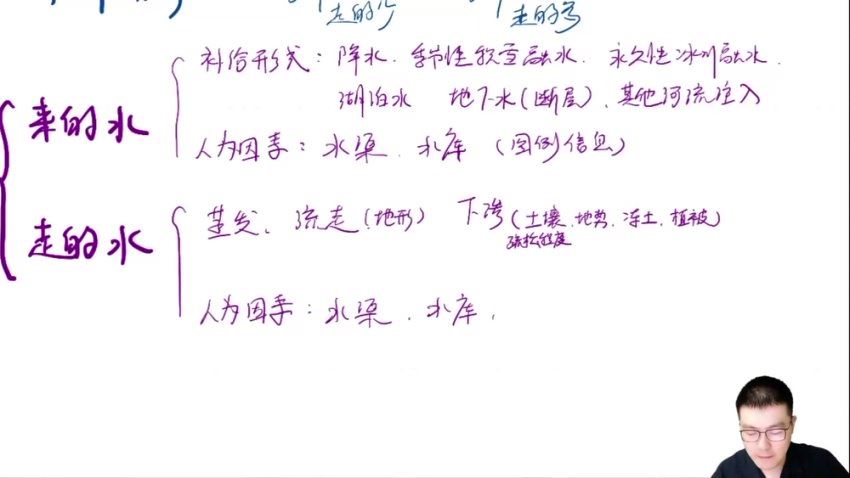 走的少 走的多
补给形式：降水．季节性积雪融水． 永久性冰川融水．
湖泊水 地下水(断层)、其他河流注入
来的水
人为因素：水渠．水库 (图例信息)
蒸发、流走(地形) 下渗(土壤、地势、冻土、植被)
疏松程度
走的水
人为因素：水渠．水库，